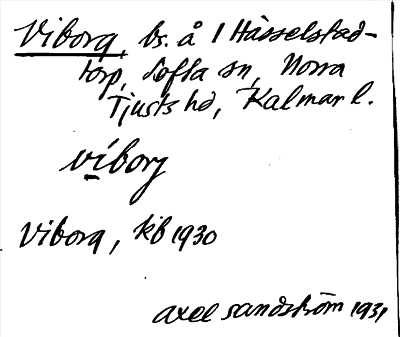 Viborg, bs. å 1 Hässelstad-
torp, Lofta sn, Norra
Tjusts hd, Kalmar l.
víborj
Viborg, kb 1930
Axel Sandström 1931